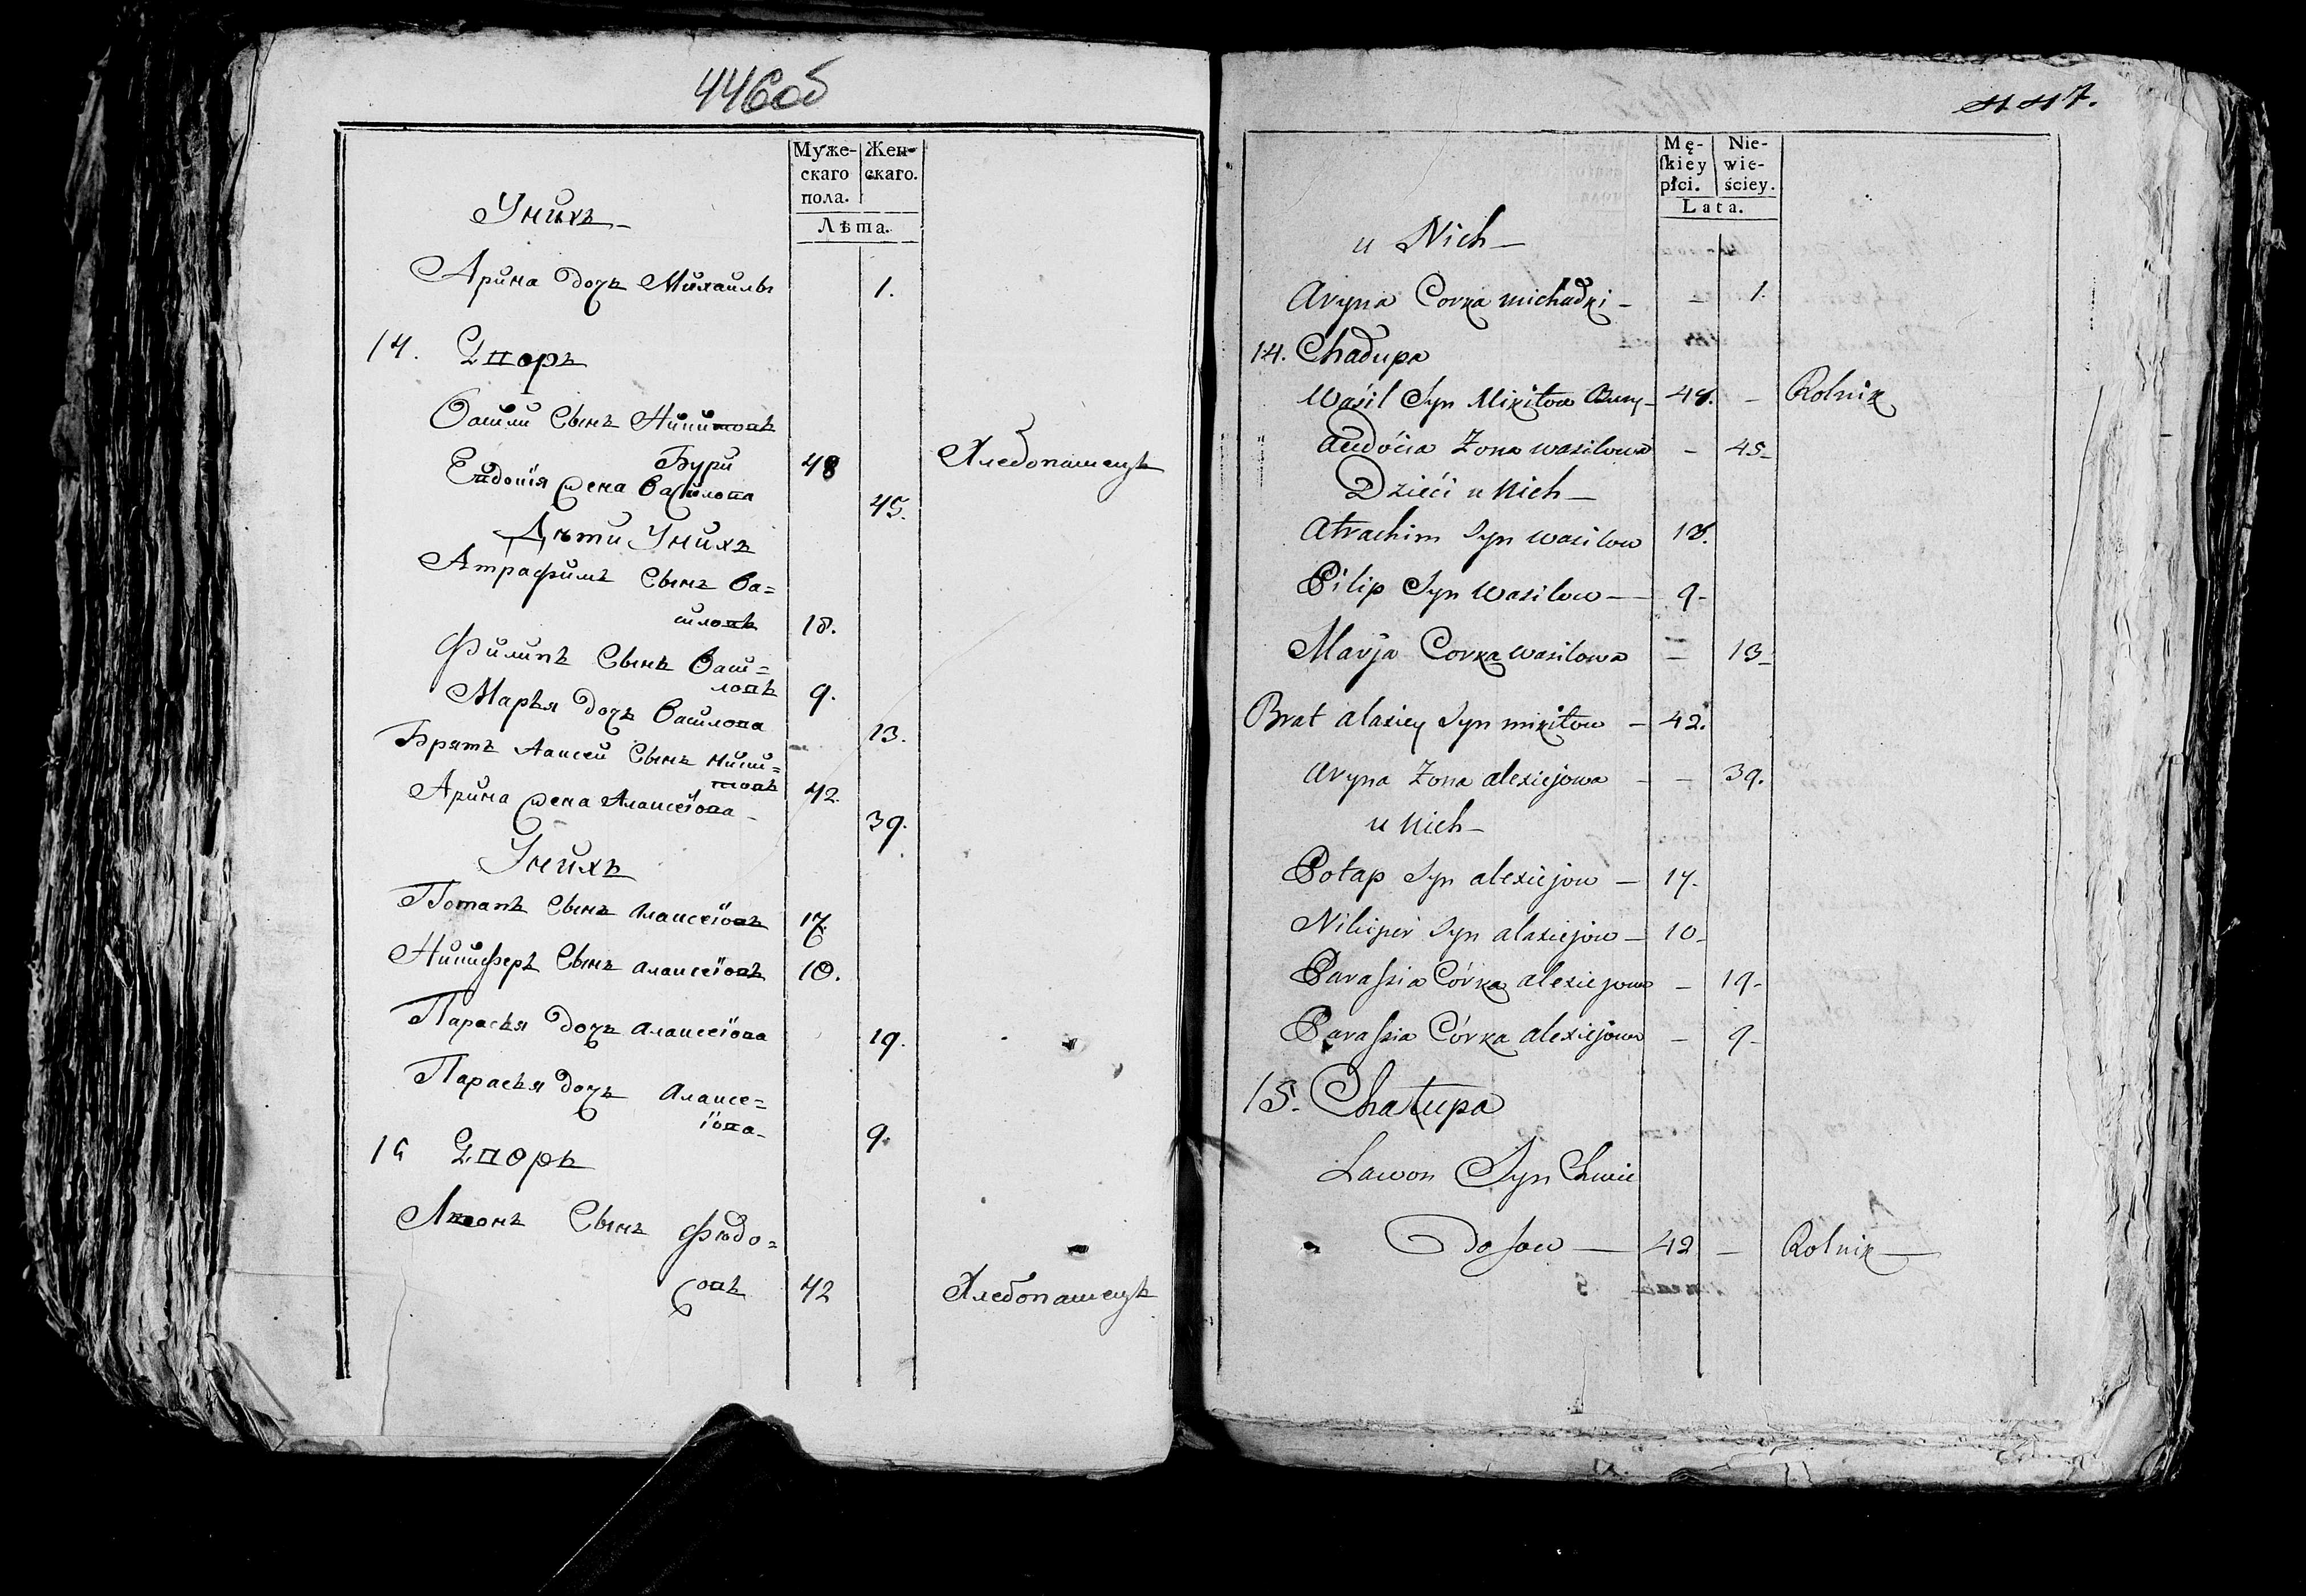 446об
Муже-
скаго
пола.
Жен-
скаго.
Лѣта.
Унихъ
Арина дочь Михаилы 1.
14. Дворъ
Василй Сынъ Никитовъ
Бури 48 Хлебопашецъ
Евдокія жена Василова 45.
Дѣти Унихъ
Атрафимъ Сынъ Ва=
силовъ 18.
Филипъ Сынъ Васи=
ловъ 9.
Марья дочь Василова 13.
Братъ Алаксей Сынъ Ники=
товъ 42.
Арина жена Алаксеіова 39.
Унихъ
Потапъ Сынъ Алаксеіовъ 17.
Никиферъ Сынъ Алаксеіовъ 10.
Парасья дочь Алаксеіова 19.
Парасья дочь Алаксе=
іова 9.
15 Дворъ
Лавонъ Сынъ Фядо=
совъ 42 Хлебопашецъ
447.
Mę-
skiey
płci.
Nie-
wie-
ściey.
Lata.
u Nich
Aryna Corka
14. Chadupa
Wasil Syn Mikitow Bury 48. Rolnik
Audocia Żona wasilowa 45
Dzieći u Nich
Atrachim Syn wasilow 18.
Pilip Syn Wasilow 9
Marja Corka wasilowa 13
Brat alaxiey Syn mikitow 42.
Aryna Żona alexiejowa 39.
u Nich
Potap Syn alexiejow 17.
Syn alaxiejow 10
Parassia Córka alexiejowa 19
Parassia Córka alexiejowa 9
15. Chatupa
Lawon Syn Chwie
Dosow 42 Rolnik